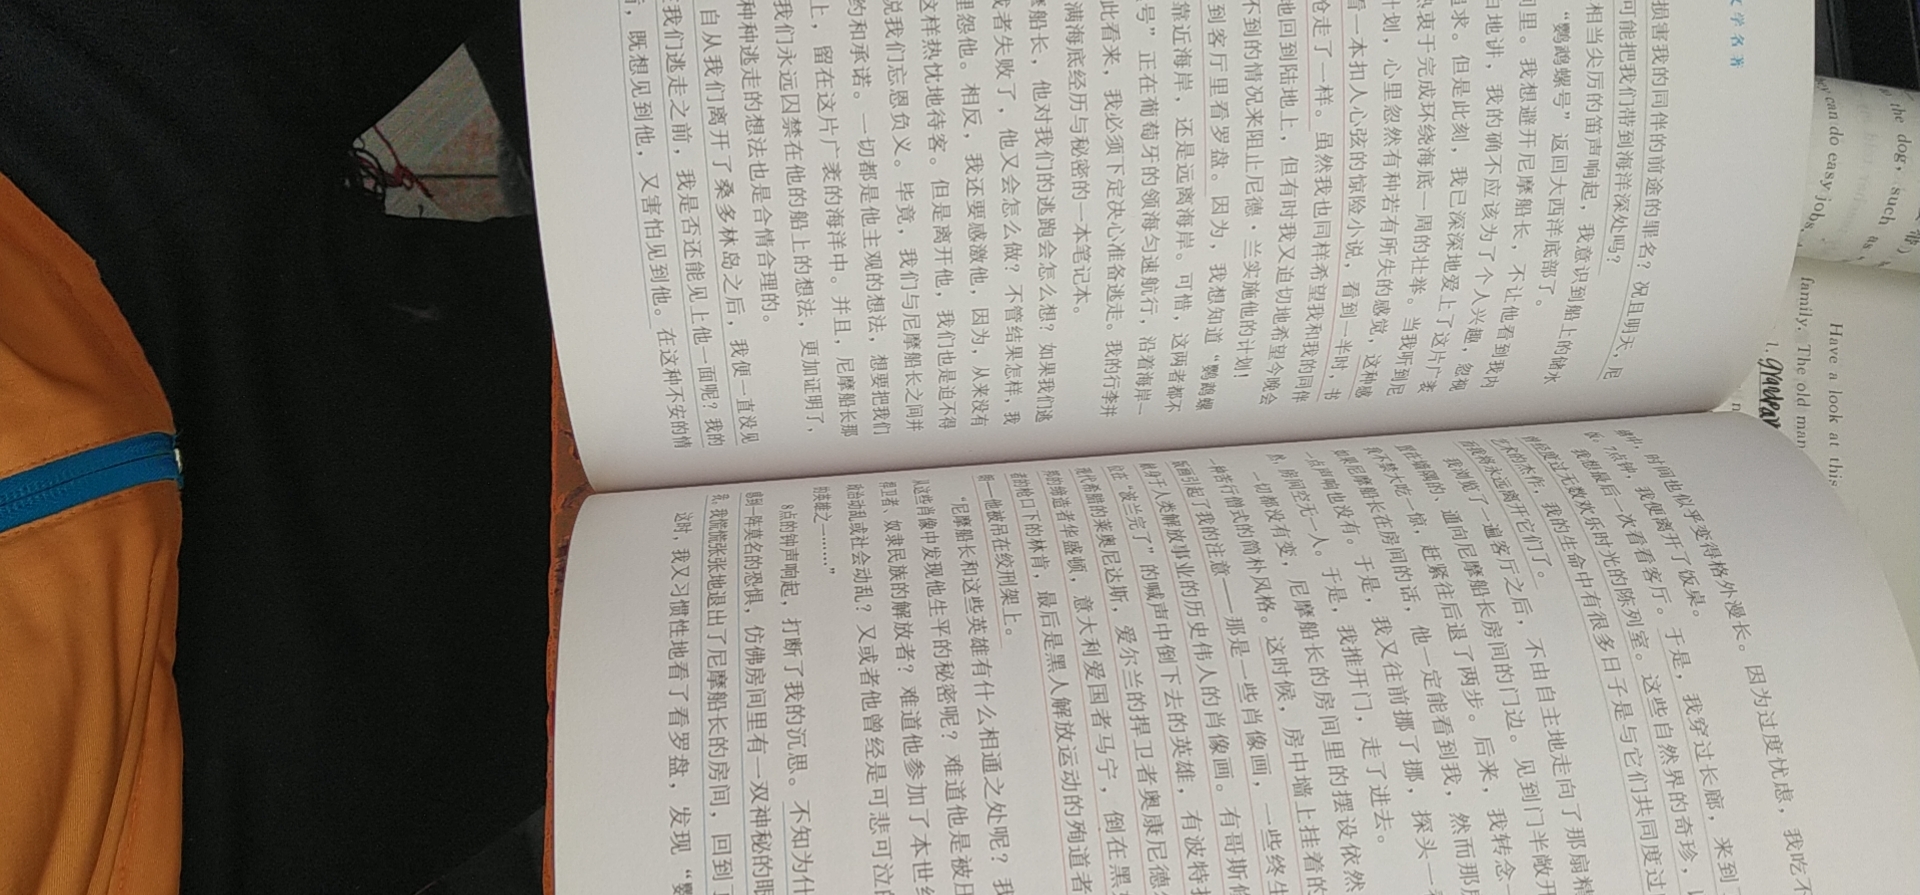 文学名著
损害我的同伴的前途的罪名？况且明天，尼
可能把我们带到海洋深处吗？
相当尖厉的笛声响起，我意识到船上的储水
“鹦鹉螺号”返回大西洋底部了。
间里。我想避开尼摩船长，不让他看到我内
白地讲，我的确不应该为了个人兴趣，忽视
求。但是此刻，我已深深地爱上了这片广袤
衷于完成环绕海底一周的壮举。当我听到尼
计划，心里忽然有种若有所失的感觉，这种感
看一本扣人心弦的惊险小说，看到一半时，书
抢走了一样。虽然我也同样希望我和我的同伴
地回到陆地上，但有时我又迫切地希望今晚会
不到的情况来阻止尼德·兰实施他的计划！
到客厅里看罗盘。因为，我想知道“鹦鹉螺
号”正在葡萄牙的领海匀速航行，沿着海岸一
靠近海岸，还是远离海岸。可惜，这两者都不
此看来，我必须下定决心准备逃走。我的行李并
满海底经历与秘密的一本笔记本。
摩船长，他对我们的逃跑会怎么想？如果我们逃
或者失败了，他又会怎么做？不管结果怎样，我
埋怨他。相反，我还要感激他，因为，从来没有
这样热忱地待客。但是离开他，我们也是迫不得
说我们忘恩负义。毕竟，我们与尼摩船长之间并
约和承诺。一切都是他主观的想法，想要把我们
上，留在这片广袤的海洋中。并且，尼摩船长那
我们永远囚禁在他的船上的想法，更加证明了，
种种逃走的想法也是合情合理的。
自从我们离开了桑多林岛之后，我便一直没见
在我们逃走之前，我是否还能见上他一面呢？我的
，既想见到他，又害怕见到他。在这种不安的情
时间也似乎变得格外漫长。因为过度忧虑，我吃
7点钟，我便离开了饭桌。
我想最后一次看看客厅。于是，我穿过长廊，来到
度过无数欢乐时光的陈列室。这些自然界的奇珍，
杰作，我的生命中有很多日子是与它们共同度过
永远离开它们了。
我浏览了一遍客厅之后，不由自主地走向了那扇精
通向尼摩船长房间的门边。见到门半敞开
我不禁大吃一惊，赶紧往后退了两步。后来，我转念一
如果尼摩船长在房间的话，他一定能看到我，然而那
一点声响也没有。于是，我又往前挪了挪，探头一
房间空无一人。于是，我推开门，走了进去。
一切都没有变，尼摩船长的房间里的摆设依然
一种苦行僧式的简朴风格。这时候，房中墙上挂着的
引起了我的注意——那是一些肖像画，一些终生
献身于人类解放事业的历史伟人的肖像画。有哥斯
在“波兰完了”的喊声中倒下去的英雄，有波特
现代希腊的莱奥尼达斯，爱尔兰的捍卫者奥康尼德
的缔造者华盛顿，意大利爱国者马宁，倒在黑
者的枪口下的林肯，最后是黑人解放运动的殉道者
——他被吊在绞刑架上。
“尼摩船长和这些英雄有什么相通之处呢？我
从这些肖像中发现他生平的秘密呢？难道他是被
捍卫者，奴隶民族的解放者？难道他参加了本世纪
政治动乱或社会动乱？又或者他曾经是可悲可泣的
的英雄之一……”
8点的钟声响起，打断了我的沉思。不知为什
感到一阵莫名的恐惧，仿佛房间里有一双神秘的眼
我慌慌张张地退出了尼摩船长的房间，回到了
这时，我又习惯性地看了看罗盘，发现“鹦
the dog, such as
can do easy jobs,
family. The old man
Have a look at this
1. grandpar